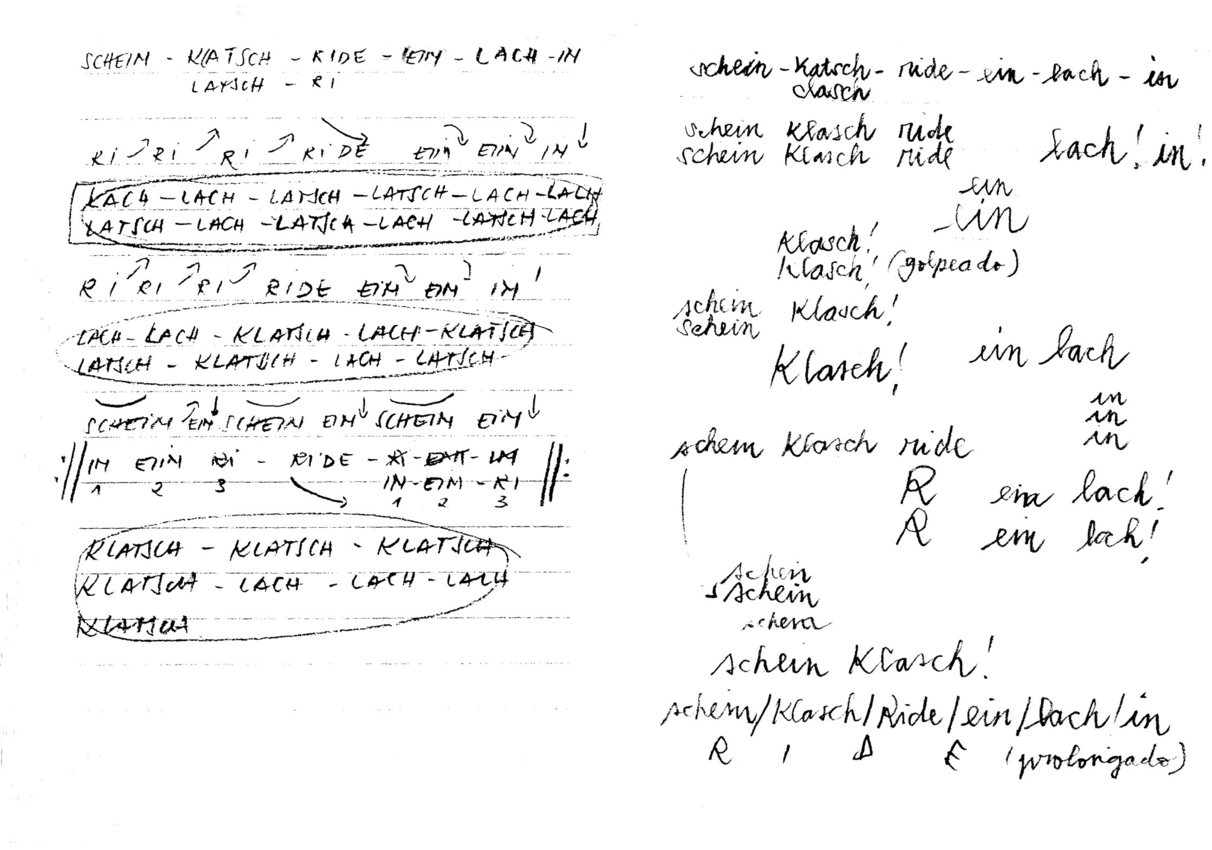 SCHEIM - KLATSCH - RIDE - EIM - LACH - IM
LATSCH - RI
RI RI RI RIDE EIM EIM IM
KACH - LACH - LATSCH - LATSCH - LACH - LACH
LATSCH - LACH - LATSCH - LACH - LATSCH - LACH
RI RI RI RIDE EIM EIM IM !
LACH - LACH - KLATSCH - LACH - KLATSCH
LATSCH - KLATSCH - LACH - LATSCH -
SCHEIM EIM SCHEIM EIM SCHEIM EIM
IM EIM RI - RIDE -
IM - EIM - RI
1 2 3 1 2 3
KLATSCH - KLATSCH - KLATSCH
KLATSCH - LACH - LACH - LACH
KLATSCH
schein - Katsch - ride - ein - lach - in
clasch
schein Klasch ride
schein Klasch ride lach! in!
ein
- in
Klasch!
Klasch! (golpeado)
schein Klasch!
schein
Klasch! ein lach
in
in
in
schein Klasch ride
R ein lach!
R ein lach!
schein
schein
schein
schein Klasch!
schein/Klasch/Ride/ein/lach/in
R I D E (prolongado)